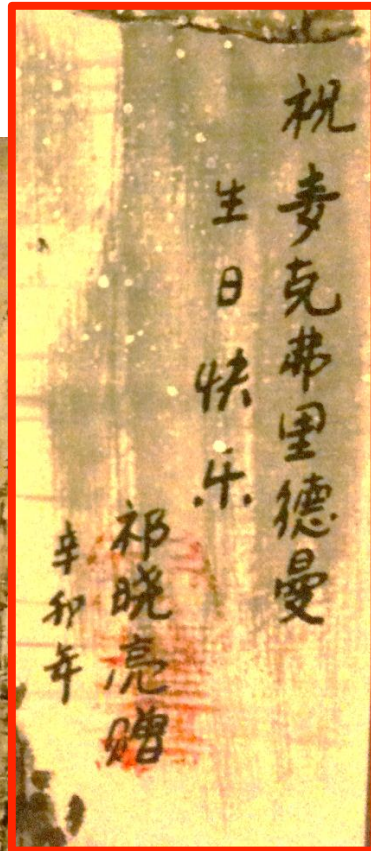 祝麦克弗里德曼
生日快乐
祁晓亮赠
辛卯年